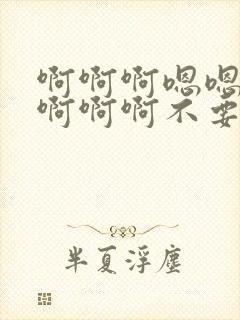 啊啊啊嗯嗯
啊啊啊不要
半夏浮尘